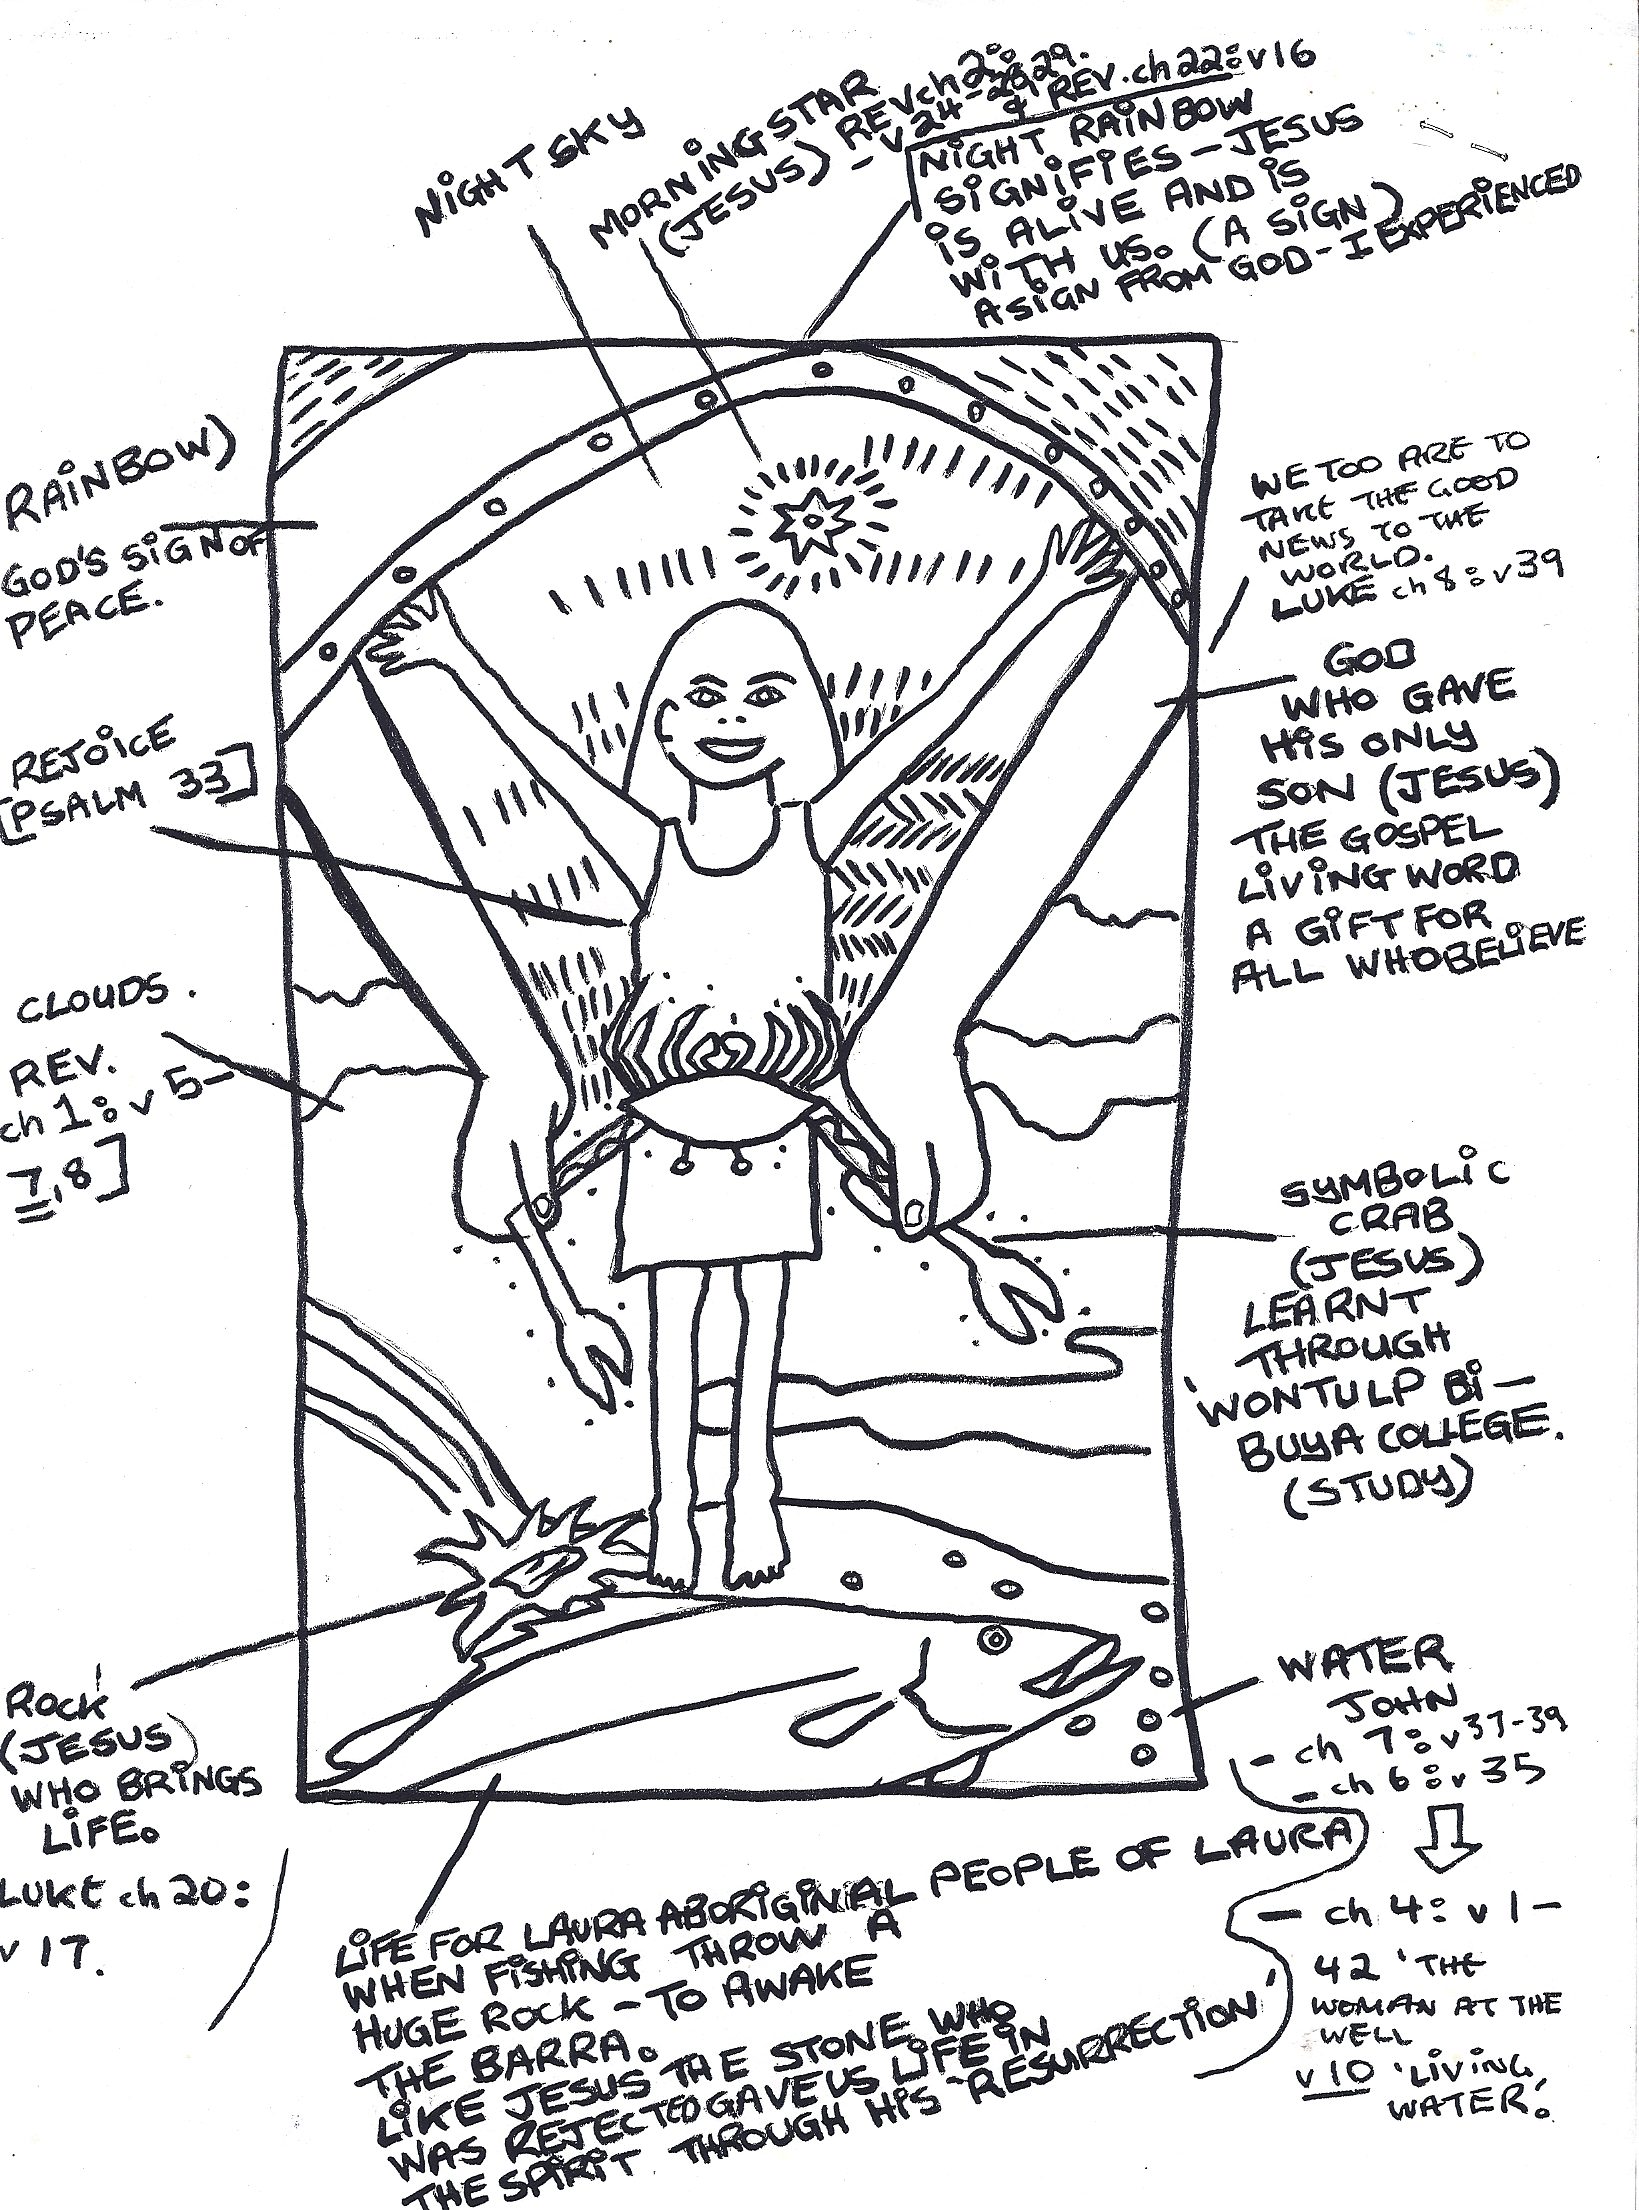 NIGHT SKY
MORNING STAR
(JESUS) REV ch 2:
- v 24 - 29.
& REV. ch 22: v 16
NIGHT RAINBOW
SIGNIFIES - JESUS
IS ALIVE AND IS
WITH US. (A SIGN)
A SIGN FROM GOD - I EXPERIENCED
RAINBOW)
GOD'S SIGN OF
PEACE.
REJOICE
[PSALM 33]
CLOUDS.
REV.
ch 1: v 5-
7,8]
ROCK
(JESUS)
WHO BRINGS
LIFE.
LUKE ch 20:
v 17.
WE TOO ARE TO
TAKE THE GOOD
NEWS TO THE
WORLD.
LUKE ch 8: v 39
GOD
WHO GAVE
HIS ONLY
SON (JESUS)
THE GOSPEL
LIVING WORD
A GIFT FOR
ALL WHO BELIEVE
SYMBOLIC
CRAB
(JESUS)
LEARNT
THROUGH
'WONTULP BI-
BUYA COLLEGE.
(STUDY)
WATER
JOHN
- ch 7: v 37-39
- ch 6: v 35
- ch 4: v 1-
42 'THE
WOMAN AT THE
WELL
v 10 'LIVING
WATER'.
LIFE FOR LAURA ABORIGINAL PEOPLE OF LAURA)
WHEN FISHING THROW A
HUGE ROCK - TO AWAKE
THE BARRA.
LIKE JESUS THE STONE WHO
WAS REJECTED GAVE US LIFE IN
THE SPIRIT THROUGH HIS 'RESURRECTION'